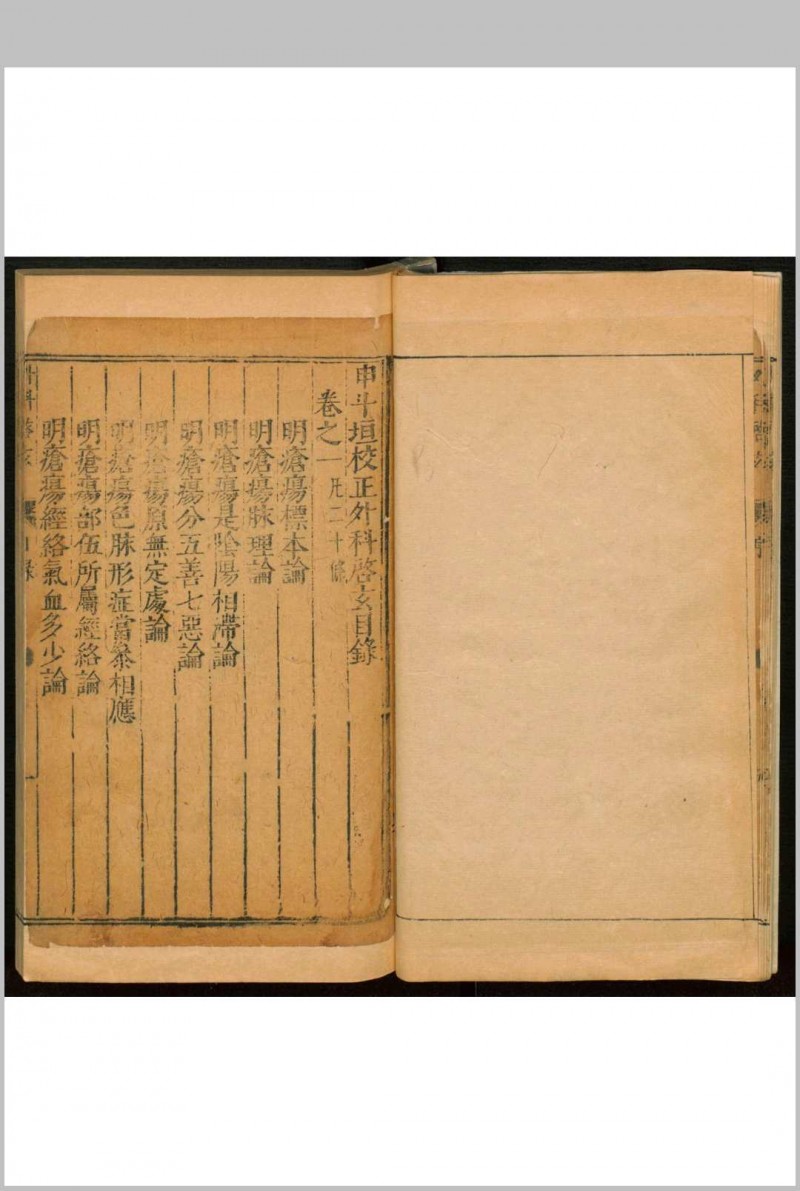 申斗垣校正外科啓玄目錄
卷之一 凡二十條
明瘡瘍標本論
明瘡瘍脉理論
明瘡瘍是陰陽相滯論
明瘡瘍分五善七惡論
明瘡瘍原無定處論
明瘡瘍色脉形症當叅相應
明瘡瘍部伍所屬經絡論
明瘡瘍經絡氣血多少論